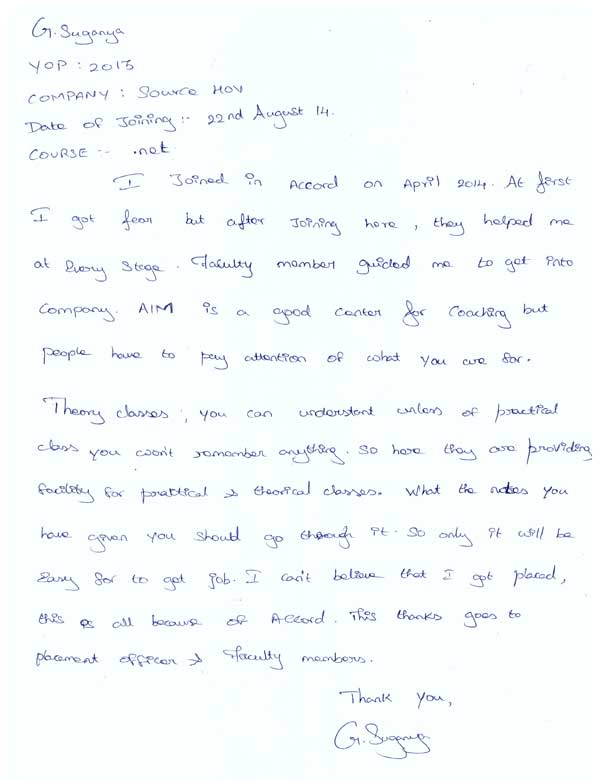 G. Suganya
YOP : 2013
COMPANY : Source HOV
Date of Joining :- 22nd August 14.
COURSE :- .net
I Joined in Accord on April 2014. At first
I got fear but after Joining here, they helped me
at Every Stage. Faculty member guided me to get into
Company. AIM is a good center for Coaching but
people have to pay attention of what you are for.
Theory classes, you can understant unless of practical
class you won't remember anything. So here they are providing
facility for pratical & theorical classes. What the notes you
have given you should go through it. So only it will be
Easy for to get job. I can't believe that I got placed,
this is all because of Accord. This thanks goes to
placement officer & Faculty members.
Thank you,
G. Suganya